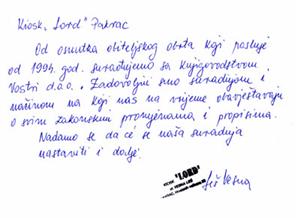 Kiosk "Lord" Pakrac
Od osnutka obiteljskog obrta koji posluje
od 1994. god. surađujemo sa Knjigovodstvom
Vostri d.o.o. Zadovoljni smo suradnjom i
načinom na koji nas na vrijeme obavještavaju
o svim zakonskim promjenama i propisima.
Nadamo se da će se naša suradnja
nastaviti i dalje.
"LORD"
Vesna